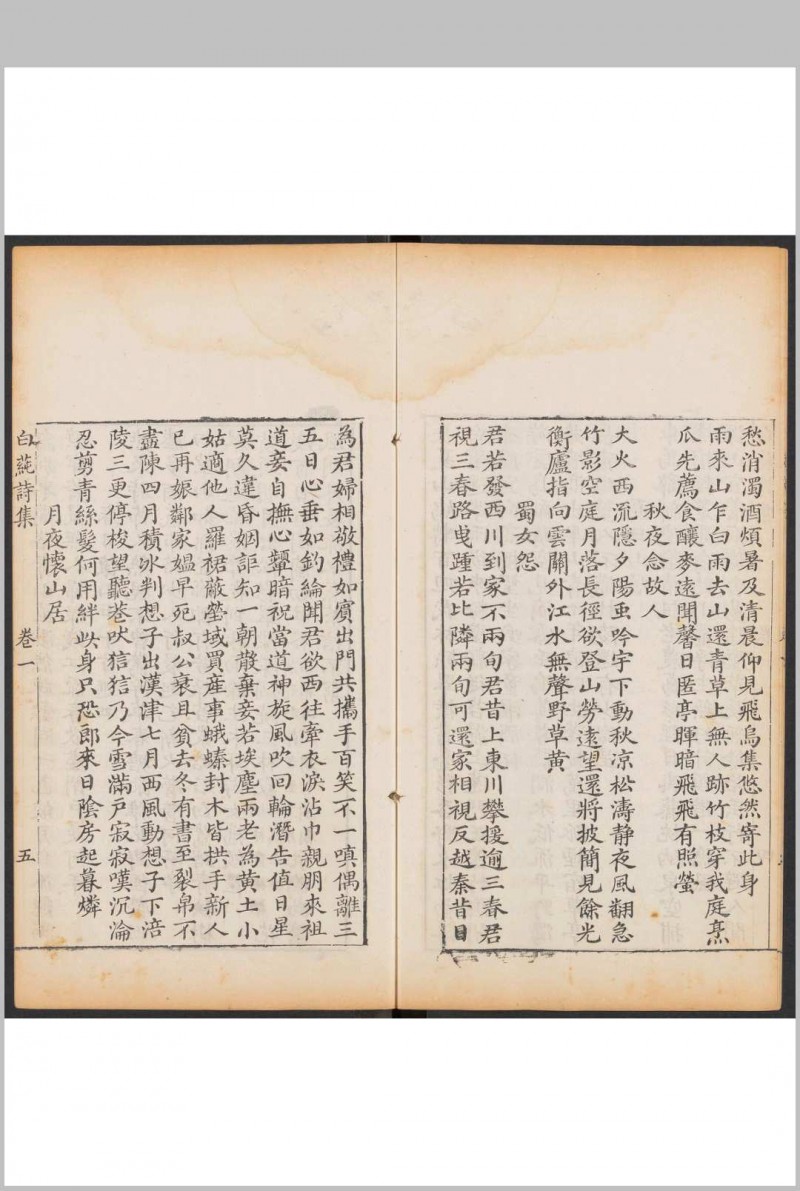 愁消濁酒煩暑及清晨仰見飛鳥集悠然寄此身
雨來山乍白雨去山還青草上無人跡竹枝穿我庭烹
瓜先薦食釀麥遠聞馨日匿亭暉暗飛飛有照螢
秋夜念故人
大火西流隱夕陽虫吟宇下動秋凉松濤静夜風翻急
竹影空庭月落長徑欲登山勞遠望還將披簡見餘光
衡廬指向雲關外江水無聲野草黄
蜀女怨
君若發西川到家不兩旬君昔上東川攀援逾三春君
視三春路曳踵若比隣兩旬可還家相視反越秦昔日
為君婦相敬禮如賓出門共攜手百笑不一嗔偶離三
五日心垂如釣綸聞君欲西往牽衣淚沾巾親朋來祖
道妾自撫心顰暗祝當道神旋風吹回輪潛告值日星
莫久違昏姻詎知一朝散棄妾若埃塵兩老為黄土小
姑適他人羅裙蔽塋域買産事蛾螓封木皆拱手新人
已再娠鄰家媼早死叔公衰且貧去冬有書至裂帛不
盡陳四月積冰判想子出漢津七月西風動想子下涪
陵三更停梭望聽巷吠狺狺乃今雪滿戸寂寂嘆沉淪
忍剪青絲髮何用絆此身只恐郎來日陰房起暮燐
月夜懷山居
白蒓詩集
卷一
五